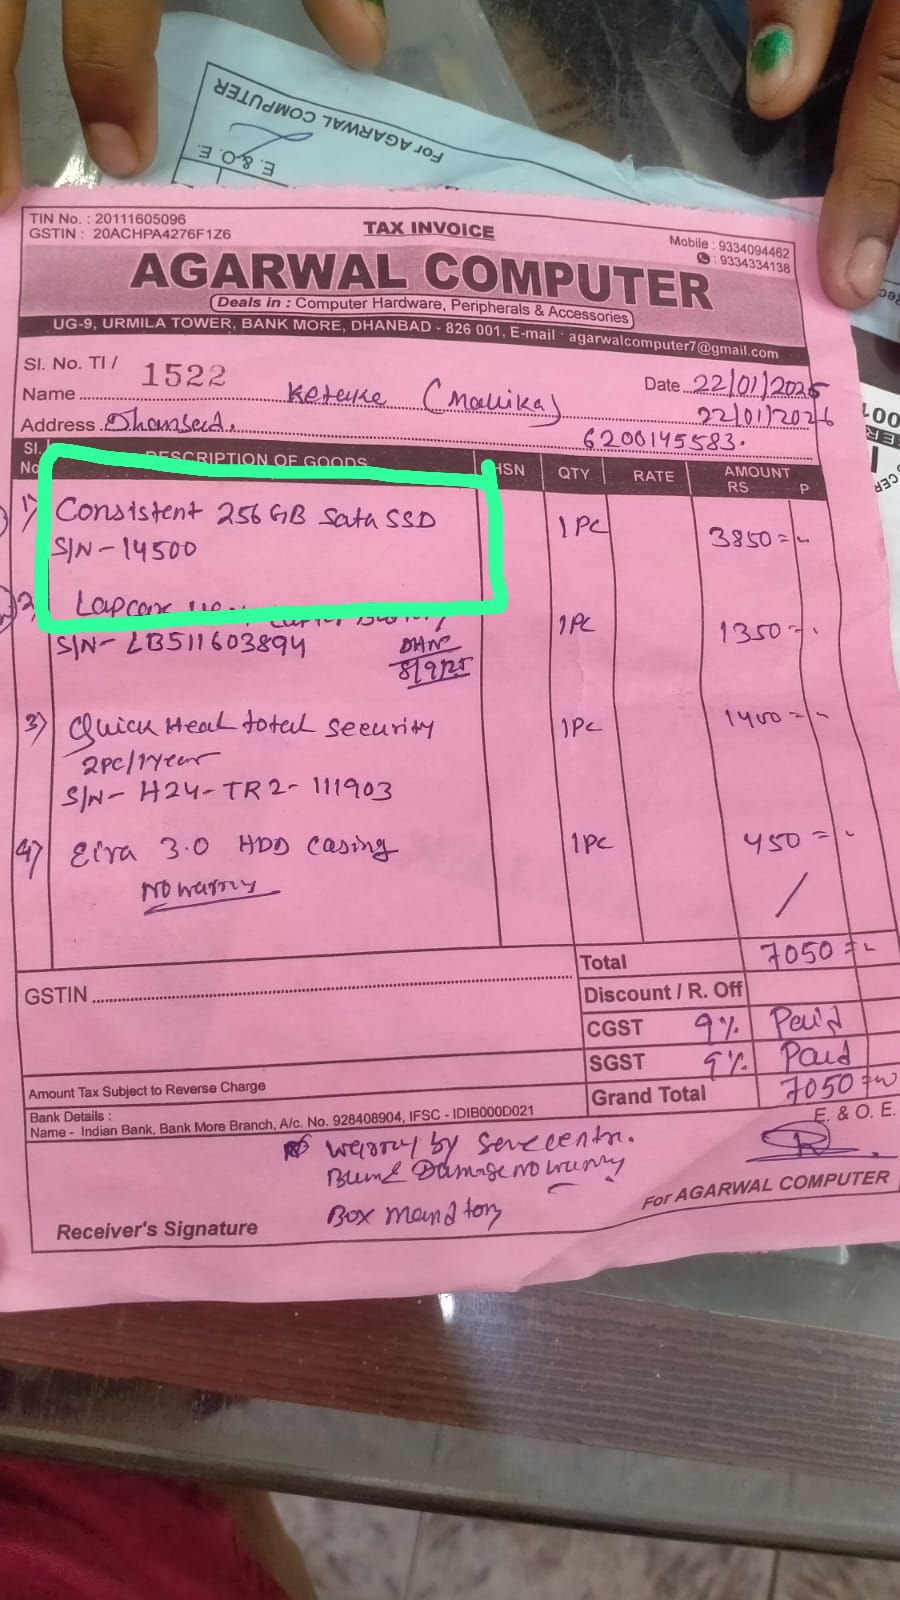 For AGARWAL COMPUTER
E. & O. E.
TIN No. : 20111605096
GSTIN : 20ACHPA4276F1Z6
TAX INVOICE
Mobile : 9334094462
: 9334334138
AGARWAL COMPUTER
(Deals in : Computer Hardware, Peripherals & Accessories)
UG-9, URMILA TOWER, BANK MORE, DHANBAD - 826 001, E-mail : agarwalcomputer7@gmail.com
Sl. No. TI / 1522
Date 22/01/2026
Name (Mallika)
22/01/2026
Address
6200145583.
Sl. No. DESCRIPTION OF GOODS HSN QTY. RATE AMOUNT RS P
1) Consistent 256 GB Sata SSD 1 PC 3850=
S/N-14500
2) Lapcare 1PC 1350=
S/N- LB511603894
8/9/25
3) Quick Heal total Security 1PC 1400=
2pc/1year
S/N- H24-TR2-111903
4) 3.0 HDD Casing 1PC 450=
Total 7050=
GSTIN
Discount / R. Off
CGST 9% Paid
SGST 9% Paid
Amount Tax Subject to Reverse Charge
Grand Total 7050=
Bank Details :
Name - Indian Bank, Bank More Branch, A/c. No. 928408904, IFSC - IDIB000D021
E. & O. E.
by
Box
For AGARWAL COMPUTER
Receiver's Signature